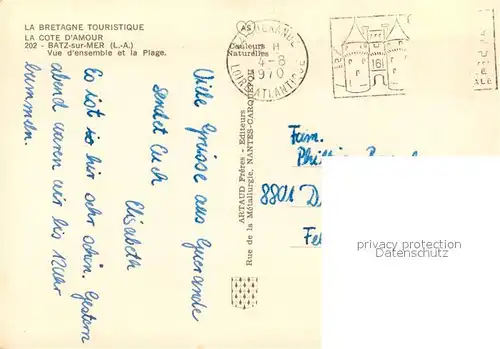 LA BRETAGNE TOURISTIQUE
LA COTE D'AMOUR
202 - BATZ-sur-MER (L.-A.)
Vue d'ensemble et la Plage.
AS
Couleurs
Naturelles
GUERANDE
H
4-8
1970
LOIRE ATLANTIQUE
ARTAUD Frères - Editeurs
Rue de la Métallurgie, NANTES-CARQUEFOU
Viele Grüsse aus Guerande
sendet Euch
Elisabeth
Es ist is hir sehr schön. Gestern
abend waren wir bis 12 Uhr
bummen.
Fam.
8801 D
Fe
privacy protection
ansichtskarten-center.de